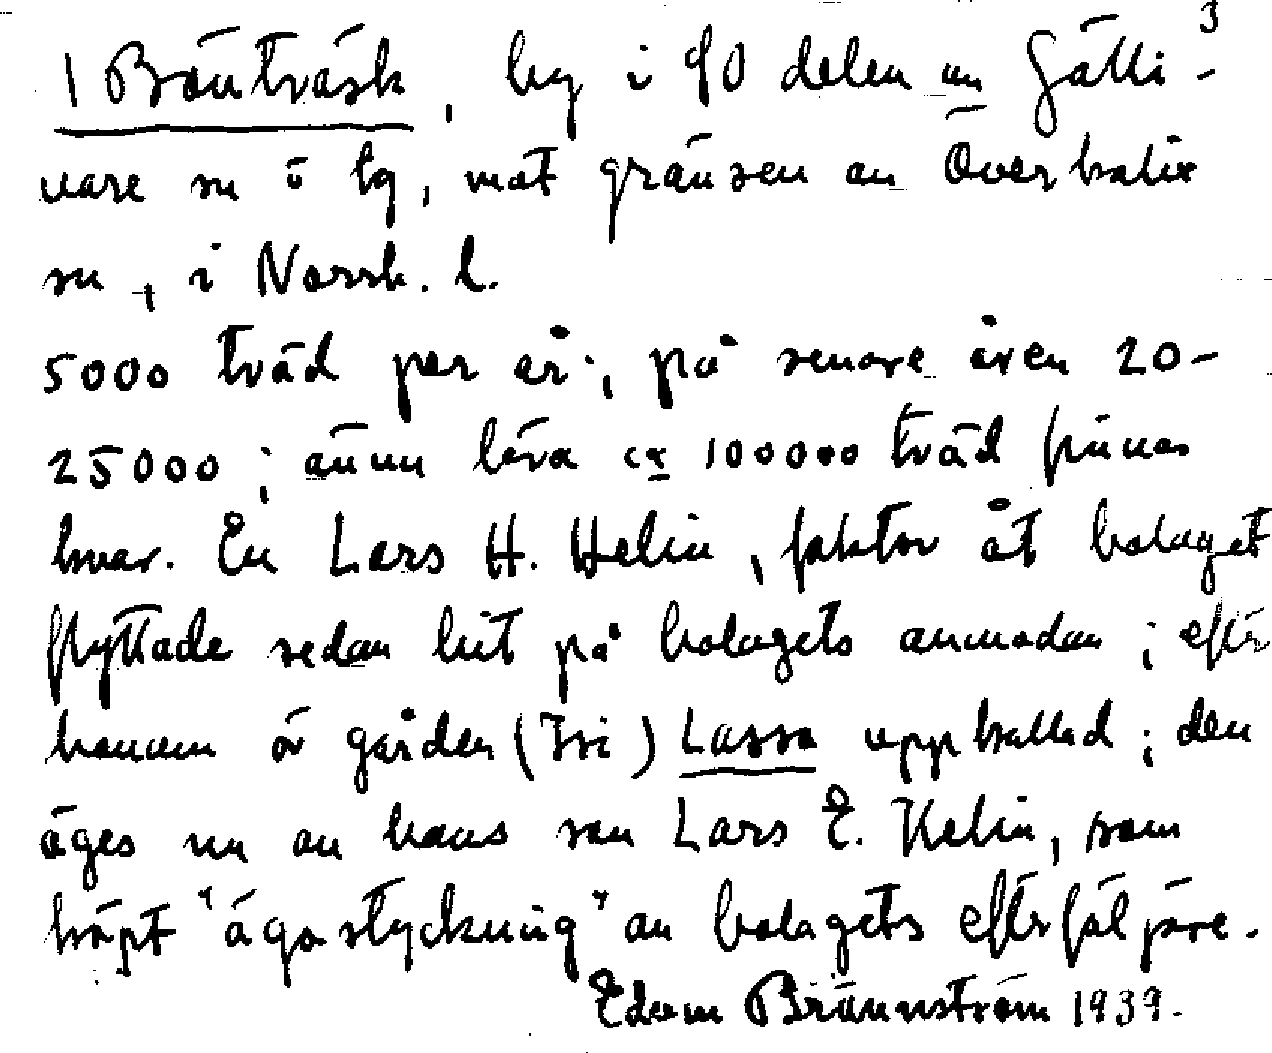 3
1 Bönträsk, by i SO delen av Gälli-
vare sn o lg, mot gränsen av Överkalix
sn, i Norrb. l.
5000 träd per år; på senare även 20-
25000; ännu lära ca 100000 träd finnas
kvar. En Lars H. Helin, faktor åt bolaget
flyttade sedan hit på bolagets anmodan; efter
honom är gården (Tri) Lassa uppkallad; den
äges nu av hans son Lars E. Helin, som
köpt "ägostyckning" av bolagets efterföljare.
Edvin Brännström 1939.